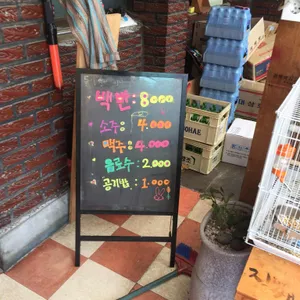 백반: 8000
소주: 4.000
맥주: 4.000
음료수: 2.000
공기밥: 1.000